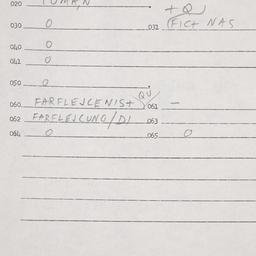 020
+ Q
030 0 031 (FICT NAS
040 0
041 0
050 0
QU
060 FARFLEJCENIST 061 -
062 FARFLEJCUNG/DI 063
064 0 065 0